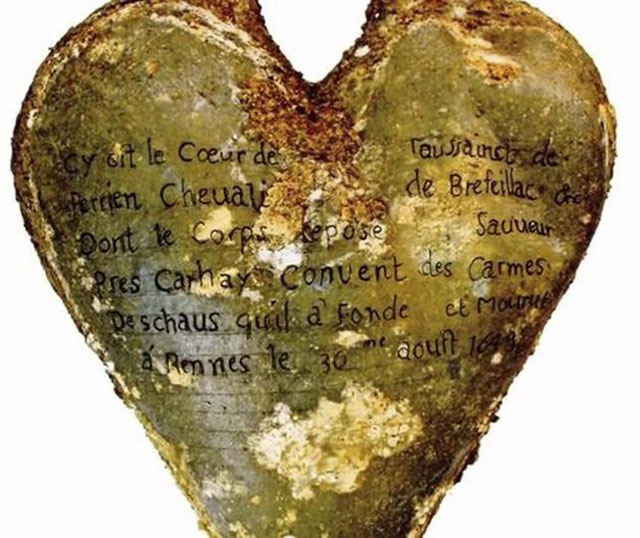 cy git le Cœur de Toussainct de
Perrien Cheuali de Brefeillac
Dont le Corps Repose Sauueur
Pres Carhay Convent des Carmes
Deschaus quil a Fonde et Mourut
á Rennes le 30 me aoust